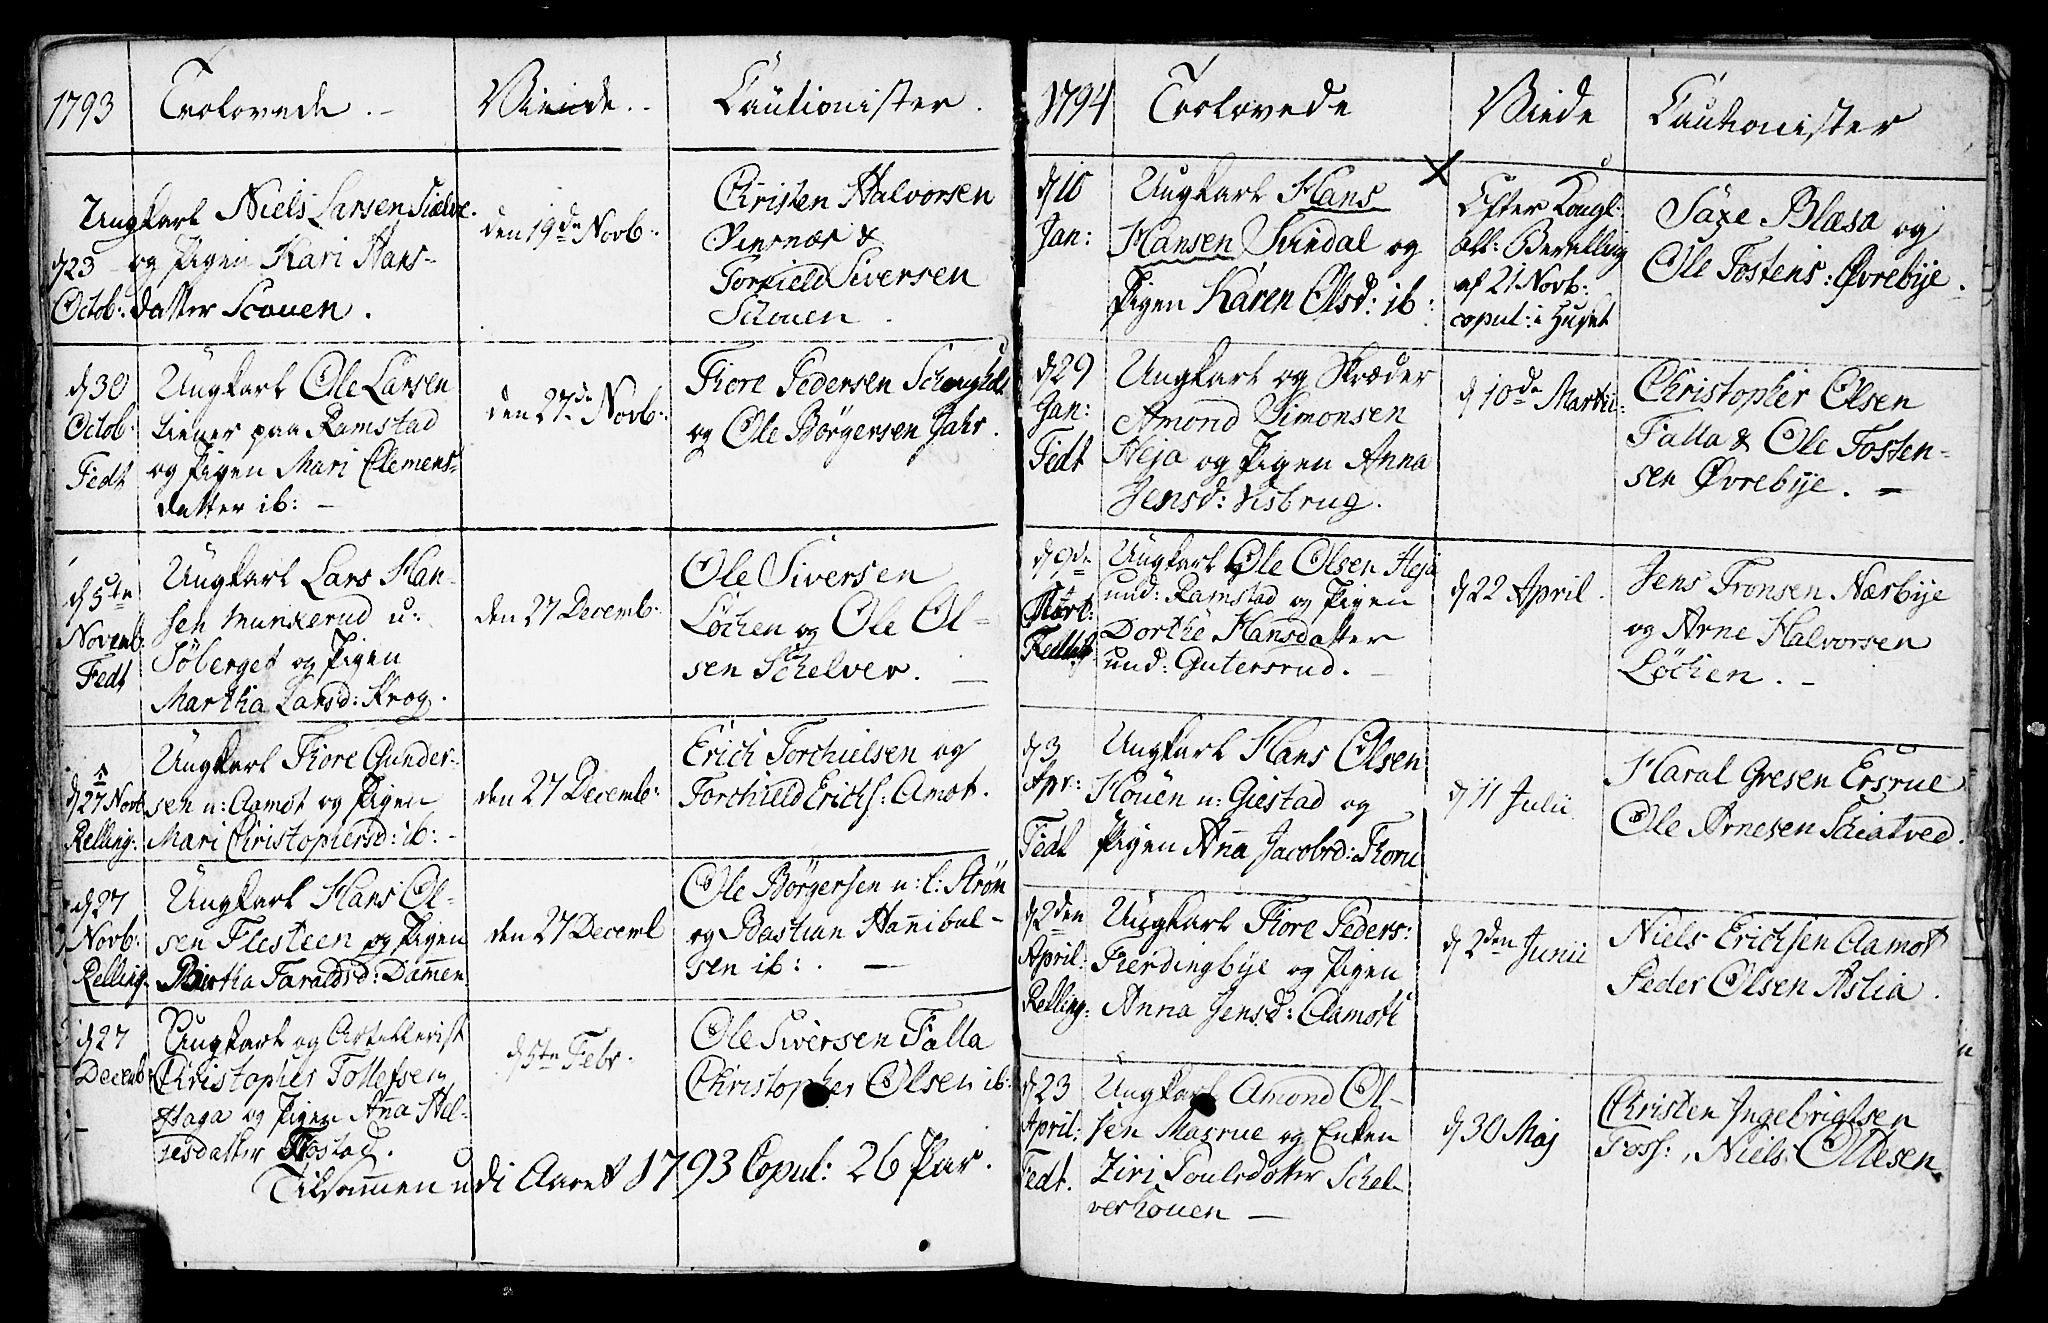 1793
Trolovede.
Viede.
Cautionister.
Ungkarl Niels Larsen Sielve.
d 23 og Pigen Kari Hans-
Octob: datter Scouen.
den 19de Novb:
Christen Halvorsen
&
Torkield Siversen
Scouen.
d 30
Octob:
Fedt
Ungkarl Ole Larsen
tiener paa Ramstad
og Pigen Mari Clemens-
datter ib:
den 27de Novb:
Tore Pedersen
og Ole Börgersen Jahr.
d 5te
Novemb:
Fedt
Ungkarl Lars Han-
sen Munkerud u:
Söberget og Pigen
Martha Larsd: Krog.
den 27 Decemb:
Ole Siversen
Löchen og Ole Ol-
sen Schelver.
d 27 Novb
Relling:
Ungkarl Tore Gunder-
sen u: Aamot og Pigen
Mari Christophersd: ib:
den 27 Decemb:
Erich Torchielsen og
Torchield Erichs: Amot.
d 27
Novb:
Relling:
Ungkarl Hans Ol-
sen Flesteen og Pigen
Birtha Taraldsd: Dam̄en
den 27 Decemb
Ole Börgersen u: l: Ström
og Bastian Han̄ibal-
sen ib:
d 27
Decemb:
Ungkarl og Artillerist
Christopher Tollefsen
Haga og Pigen An̄a Hel-
gesdatter Tostad.
d 5te Febr.
Ole Siversen Falla
Christopher Olsen ib:
Tilsam̄en udi Aaret 1793 Copul: 26 Par.
1794
Trolovede
Viede
Cautionister
d 10
Jan:
Ungkarl Hans
Hansen Svindal og
Pigen Karen Olsd: ib:
Efter Kongl:
all: Bevilling
af 21 Novb:
copul: i Huset
Saxe Blæsa og
Ole Tostens: Øvrebye.
d 29
Jan:
Fedt
Ungkarl og Skræder
Amond Simonsen
Heja og Pigen Anna
Jensd: Visbrug.
d 10de Martii
Christopher Olsen
Falla & Ole Tosten-
sen Øvrebye.
d 9de
Ungkarl Ole Olsen Heja
und: Ramstad og Pigen
Dorthe Hansdatter
und: Gutersrud.
d 22 April.
Jens Tronsen Nærbye
og Arne Halvorsen
Löchen.
d 3
Apr:
Fedt
Ungkarl Hans Olsen
Houen u: Giestad og
Pigen An̄a Jacobsd: Toru
d 11 Julii
Haral Gresen Ersrue
Ole Arnesen Schiatved.
d 2den
April:
Relling:
Ungkarl Tore Peders:
Fierdingbye og Pigen
Anna Jensd: Aamott
d 2den Junii
Niels Erichsen Aamot
Peder Olsen Astia.
d 23
April:
Fedt.
Ungkarl Amond Ol-
sen Masrue og Enken
Ziri Poulsdatter Schel-
verhouen
d 30 Maj
Christen Ingebrigtsen
Foss:, Niels Ollesen